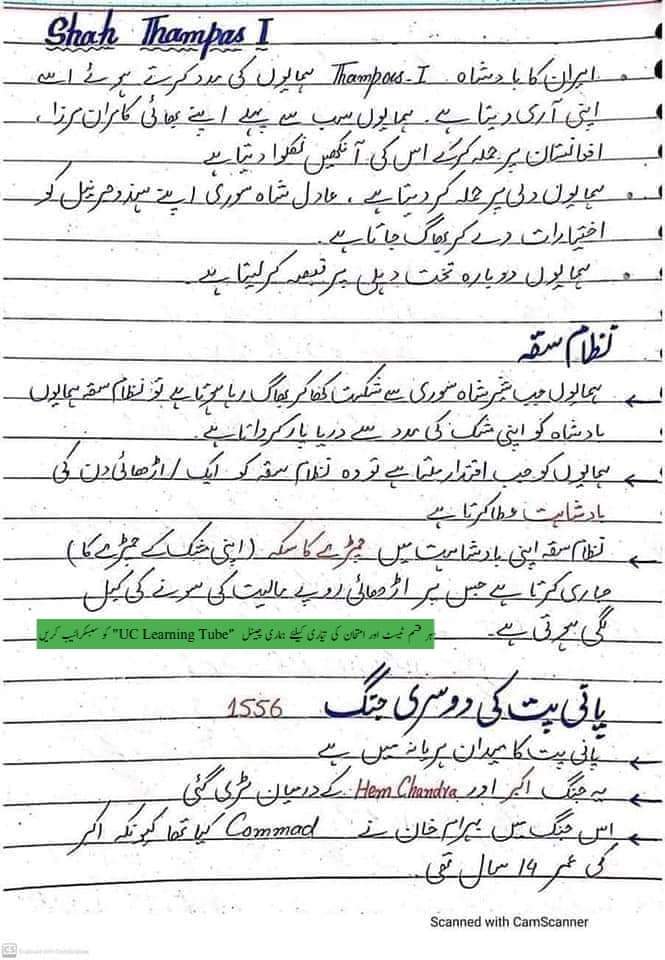 Shah Thampas I
ایران کا بادشاہ Thampas-I ہمایوں کی مدد کرتے ہوئے اسے
اپنی آرمی دیتا ہے۔ ہمایوں سب سے پہلے اپنے بھائی کامران مرزا،
افغانستان پر حملہ کرکے اس کی آنکھیں نکلوا دیتا ہے
ہمایوں دلی پر حملہ کر دیتا ہے، عادل شاہ سوری اپنے ہندو جرنیل کو
اختیارات دے کر بھاگ جاتا ہے۔
ہمایوں دوبارہ تخت دہلی پر قبضہ کر لیتا ہے۔
نظام سقہ
ہمایوں جب شیر شاہ سوری سے شکست کھا کر بھاگ رہا ہوتا ہے تو نظام سقہ ہمایوں
بادشاہ کو اپنی مشک کی مدد سے دریا پار کرواتا ہے۔
ہمایوں کو جب اقتدار ملتا ہے تو وہ نظام سقہ کو ایک / اڑھائی دن کی
بادشاہت عطا کرتا ہے
نظام سقہ اپنی بادشاہت میں چمڑے کا سکہ (اپنی مشک کے چمڑے کا)
جاری کرتا ہے جس پر اڑھائی روپے مالیت کی سونے کی کیل
لگی ہوتی ہے۔
ہر قسم ٹیسٹ اور امتحان کی تیاری کیلئے ہماری چینل "UC Learning Tube" کو سبسکرائیب کریں
پانی پت کی دوسری جنگ 1556
پانی پت کا میدان ہریانہ میں ہے
یہ جنگ اکبر اور Hem Chandra کے درمیان لڑی گئی
اس جنگ میں بہرام خان نے Commad کیا تھا کیونکہ اکبر
کی عمر 14 سال تھی۔
Scanned with CamScanner
CS Scanned with CamScanner